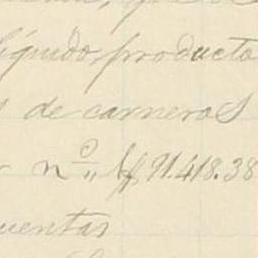 líquido producto
de carneros
nº " $ 91.418.38
cuentas